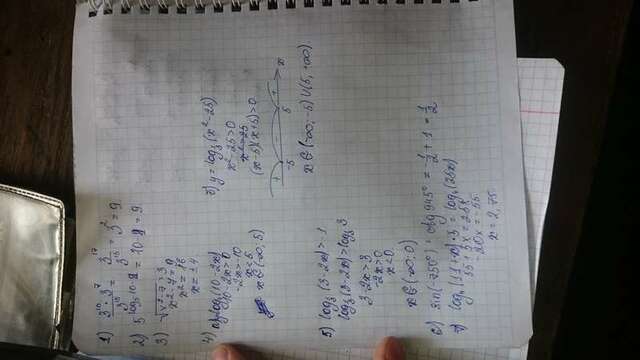 1) (3^10 · 3^7)/3^15 = 3^17/3^15 = 3^2 = 9
2) 5^(log5 10-1) = 10-1 = 9
3) √(x²-7) = 3
x²-7 = 9
x² = 16
x = ±4
4) а) log (10-2x)
10-2x>0
-2x>-10
x<5
x∈(-∞; 5)
б) y = log3 (x²-25)
x²-25>0
x²>25
(x-5)(x+5)>0
+ - + x
-5 5
x∈(-∞; -5) ∪ (5; +∞)
5) log3 (3-2x)>-1
log3 (3-2x)>log3 3
3-2x>3
-2x>0
x<0
x∈(-∞; 0)
6) sin(-750°) + ctg 945° = -1/2 + 1 = 1/2
7) log4 (11+x)·5 = log4 (25x)
55+5x = 25x
-20x = -55
x = 2,75